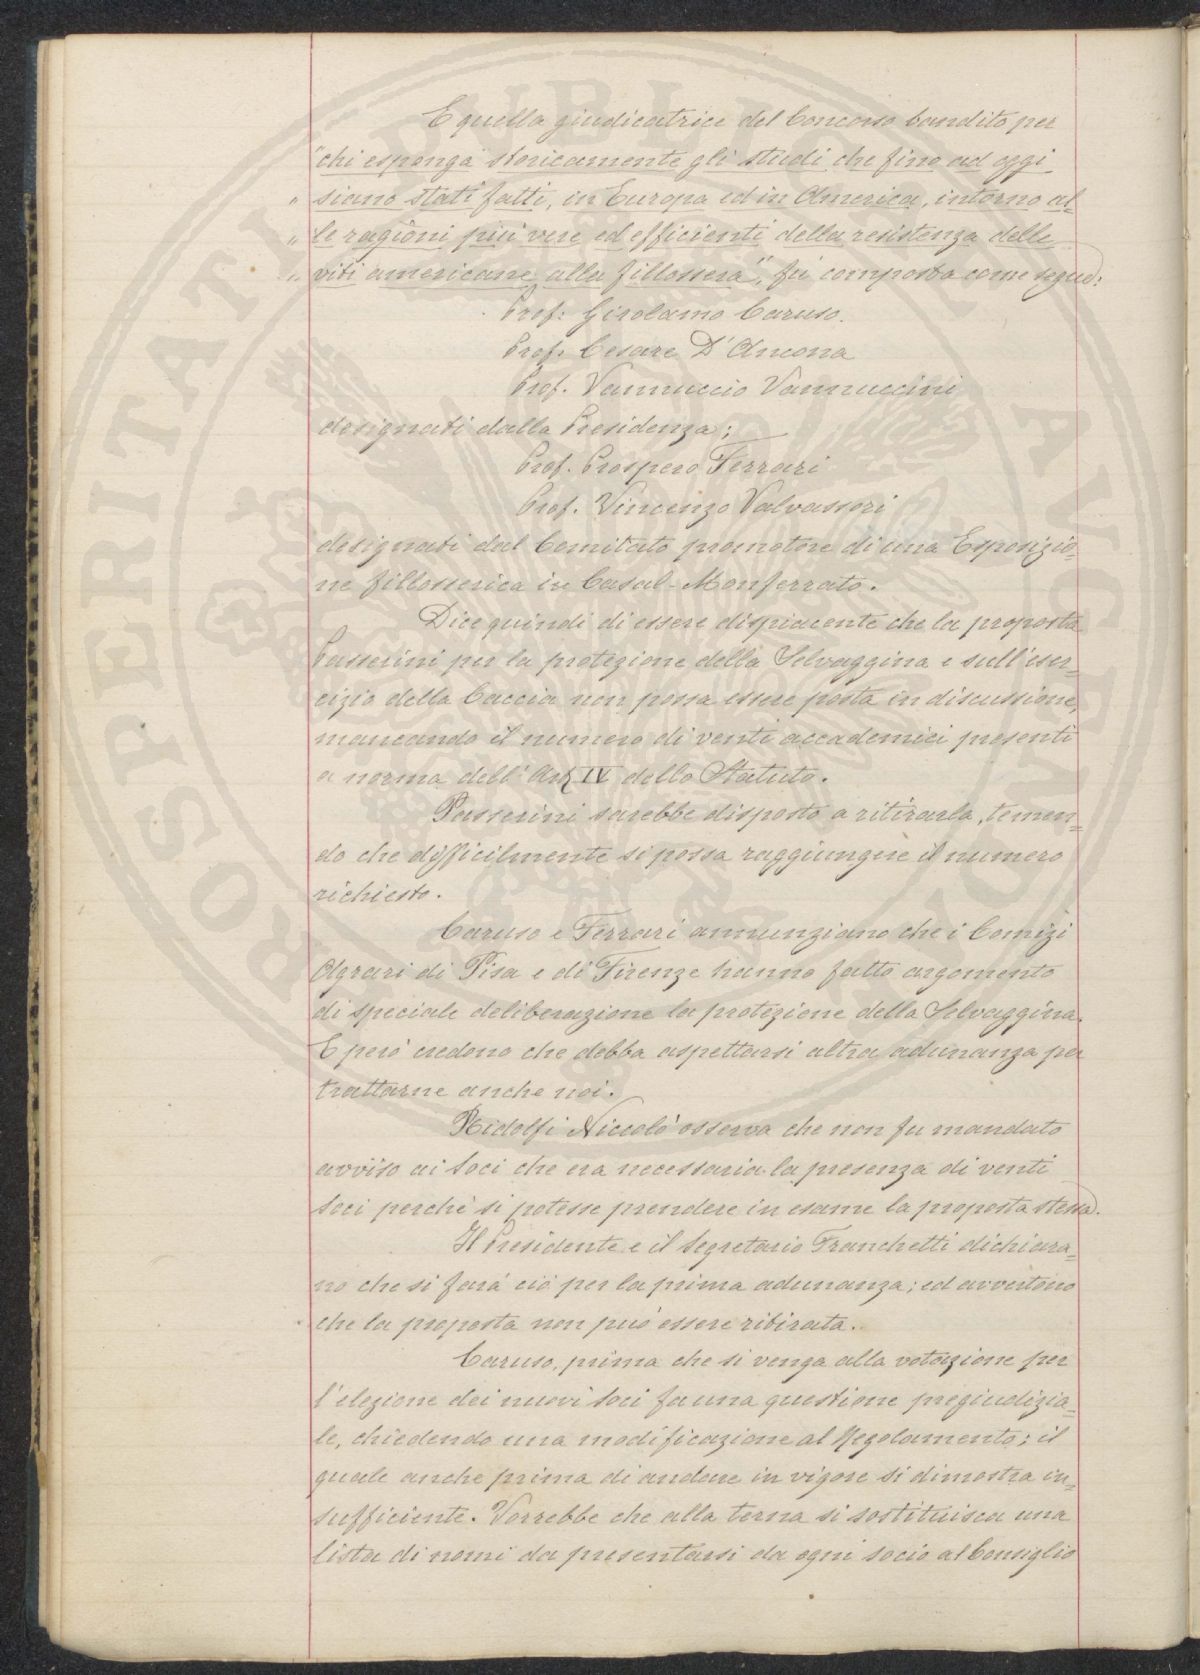 E quella giudicatrice del Concorso bandito per
"chi esponga storicamente gli studi che fino ad oggi
" siano stati fatti, in Europa ed in America, intorno al-
" le ragioni più vere ed efficienti della resistenza delle
" viti americane alla fillossera", fu composta come segue:
Prof: Girolamo Caruso.
Prof. Cesare D'Ancona
Prof. Vannuccio Vannuccini
designati dalla Presidenza;
Prof. Prospero Ferrari
Prof. Vincenzo Valvassori
designati dal Comitato promotore di una Esposizio-
ne fillosserica in Casal-Monferrato.
Dice quindi di essere dispiacente che la proposta
Passerini per la protezione della Selvaggina e sull'eser-
cizio della Caccia non possa essere posta in discussione,
mancando il numero di venti accademici presenti
a norma dell'Art IV dello Statuto.
Passerini sarebbe disposto a ritirarla, temen-
do che difficilmente si possa raggiungere il numero
richiesto.
Caruso e Ferrari annunziano che i Comizi
Agrari di Pisa e di Firenze hanno fatto argomento
di speciale deliberazione la protezione della Selvaggina.
E però credono che debba aspettarsi altra adunanza per
trattarne anche noi.
Ridolfi Niccolò osserva che non fu mandato
avviso ai Soci che era necessaria la presenza di venti
Soci perchè si potesse prendere in esame la proposta stessa.
Il Presidente e il Segretario Franchetti dichiara-
no che si farà ciò per la prima adunanza; ed avvertono
che la proposta non può essere ritirata.
Caruso, prima che si venga alla votazione per
l'elezione dei nuovi Soci fa una questione pregiudizia-
le, chiedendo una modificazione al Regolamento; il
quale anche prima di andare in vigore si dimostra in-
sufficiente. Vorrebbe che alla terna si sostituisca una
lista di nomi da presentarsi da ogni socio al Consiglio